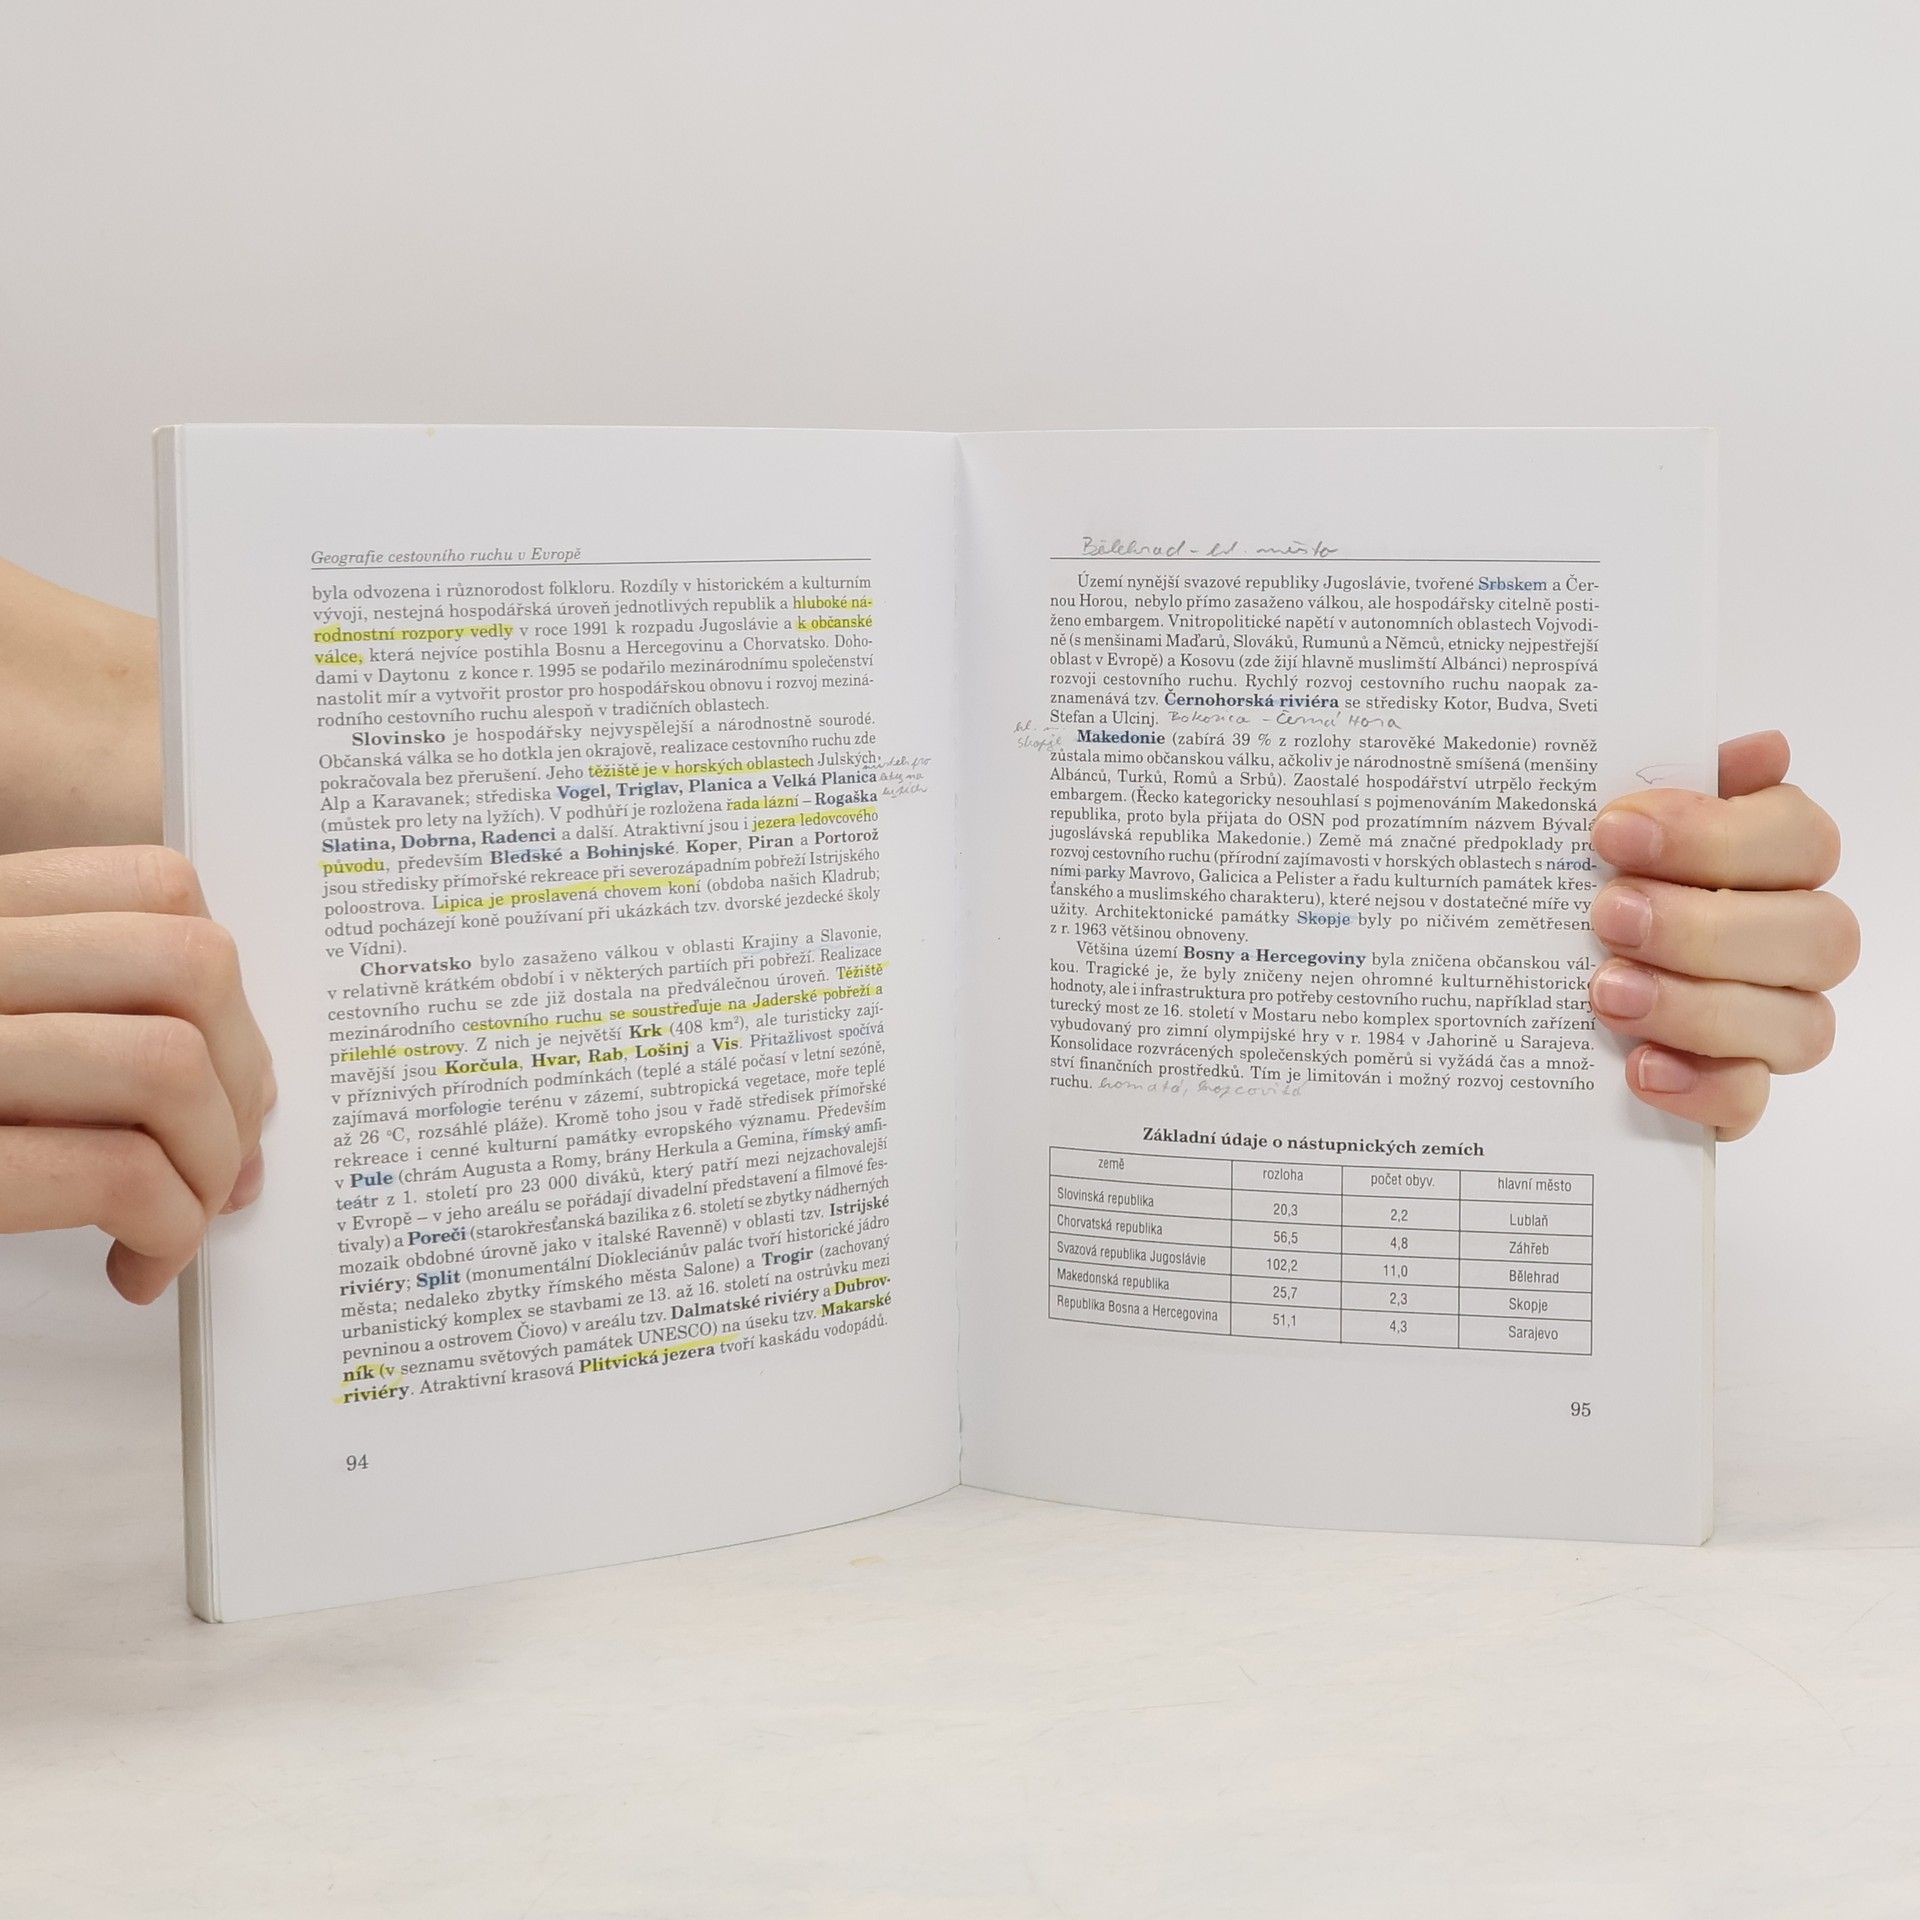 Geografie cestovního ruchu v Evropě
byla odvozena i různorodost folkloru. Rozdíly v historickém a kulturním
vývoji, nestejná hospodářská úroveň jednotlivých republik a hluboké ná-
rodnostní rozpory vedly v roce 1991 k rozpadu Jugoslávie a k občanské
válce, která nejvíce postihla Bosnu a Hercegovinu a Chorvatsko. Doho-
dami v Daytonu z konce r. 1995 se podařilo mezinárodnímu společenství
nastolit mír a vytvořit prostor pro hospodářskou obnovu i rozvoj meziná-
rodního cestovního ruchu alespoň v tradičních oblastech.
Slovinsko je hospodářsky nejvyspělejší a národnostně sourodé.
Občanská válka se ho dotkla jen okrajově, realizace cestovního ruchu zde
pokračovala bez přerušení. Jeho těžiště je v horských oblastech Julských
Alp a Karavanek; střediska Vogel, Triglav, Planica a Velká Planica
(můstek pro lety na lyžích). V podhůří je rozložena řada lázní – Rogaška
Slatina, Dobrna, Radenci a další. Atraktivní jsou i jezera ledovcového
původu, především Bledské a Bohinjské. Koper, Piran a Portorož
jsou středisky přímořské rekreace při severozápadním pobřeží Istrijského
poloostrova. Lipica je proslavená chovem koní (obdoba našich Kladrub;
odtud pocházejí koně používaní při ukázkách tzv. dvorské jezdecké školy
ve Vídni).
Chorvatsko bylo zasaženo válkou v oblasti Krajiny a Slavonie,
v relativně krátkém období i v některých partiích při pobřeží. Realizace
cestovního ruchu se zde již dostala na předválečnou úroveň. Těžiště
mezinárodního cestovního ruchu se soustřeďuje na Jaderské pobřeží a
přilehlé ostrovy. Z nich je největší Krk (408 km²), ale turisticky zají-
mavější jsou Korčula, Hvar, Rab, Lošinj a Vis. Přitažlivost spočívá
v příznivých přírodních podmínkách (teplé a stálé počasí v letní sezóně,
zajímavá morfologie terénu v zázemí, subtropická vegetace, moře teplé
až 26 °C, rozsáhlé pláže). Kromě toho jsou v řadě středisek přímořské
rekreace i cenné kulturní památky evropského významu. Především
v Pule (chrám Augusta a Romy, brány Herkula a Gemina, římský amfi-
teátr z 1. století pro 23 000 diváků, který patří mezi nejzachovalejší
v Evropě – v jeho areálu se pořádají divadelní představení a filmové fes-
tivaly) a Poreči (starokřesťanská bazilika z 6. století se zbytky nádherných
mozaik obdobné úrovně jako v italské Ravenně) v oblasti tzv. Istrijské
riviéry; Split (monumentální Diokleciánův palác tvoří historické jádro
města; nedaleko zbytky římského města Salone) a Trogir (zachovaný
urbanistický komplex se stavbami ze 13. až 16. století na ostrůvku mezi
pevninou a ostrovem Čiovo) v areálu tzv. Dalmatské riviéry a Dubrov-
ník (v seznamu světových památek UNESCO) na úseku tzv. Makarské
riviéry. Atraktivní krasová Plitvická jezera tvoří kaskádu vodopádů.
94
Bělehrad - hl. město
Území nynější svazové republiky Jugoslávie, tvořené Srbskem a Čer-
nou Horou, nebylo přímo zasaženo válkou, ale hospodářsky citelně posti-
ženo embargem. Vnitropolitické napětí v autonomních oblastech Vojvodi-
ně (s menšinami Maďarů, Slováků, Rumunů a Němců, etnicky nejpestřejší
oblast v Evropě) a Kosovu (zde žijí hlavně muslimští Albánci) neprospívá
rozvoji cestovního ruchu. Rychlý rozvoj cestovního ruchu naopak za-
znamenává tzv. Černohorská riviéra se středisky Kotor, Budva, Sveti
Stefan a Ulcinj. - Černá Hora
Skopje Makedonie (zabírá 39 % z rozlohy starověké Makedonie) rovněž
zůstala mimo občanskou válku, ačkoliv je národnostně smíšená (menšiny
Albánců, Turků, Romů a Srbů). Zaostalé hospodářství utrpělo řeckým
embargem. (Řecko kategoricky nesouhlasí s pojmenováním Makedonská
republika, proto byla přijata do OSN pod prozatímním názvem Bývalá
jugoslávská republika Makedonie.) Země má značné předpoklady pro
rozvoj cestovního ruchu (přírodní zajímavosti v horských oblastech s národ-
ními parky Mavrovo, Galicica a Pelister a řadu kulturních památek křes-
ťanského a muslimského charakteru), které nejsou v dostatečné míře vy
užity. Architektonické památky Skopje byly po ničivém zemětřesení
z r. 1963 většinou obnoveny.
Většina území Bosny a Hercegoviny byla zničena občanskou vál-
kou. Tragické je, že byly zničeny nejen ohromné kulturněhistorické
hodnoty, ale i infrastruktura pro potřeby cestovního ruchu, například starý
turecký most ze 16. století v Mostaru nebo komplex sportovních zařízení
vybudovaný pro zimní olympijské hry v r. 1984 v Jahorině u Sarajeva.
Konsolidace rozvrácených společenských poměrů si vyžádá čas a množ-
ství finančních prostředků. Tím je limitován i možný rozvoj cestovního
ruchu.
Základní údaje o nástupnických zemích
země rozloha počet obyv. hlavní město
Slovinská republika 20,3 2,2 Lublaň
Chorvatská republika 56,5 4,8 Záhřeb
Svazová republika Jugoslávie 102,2 11,0 Bělehrad
Makedonská republika 25,7 2,3 Skopje
Republika Bosna a Hercegovina 51,1 4,3 Sarajevo
95